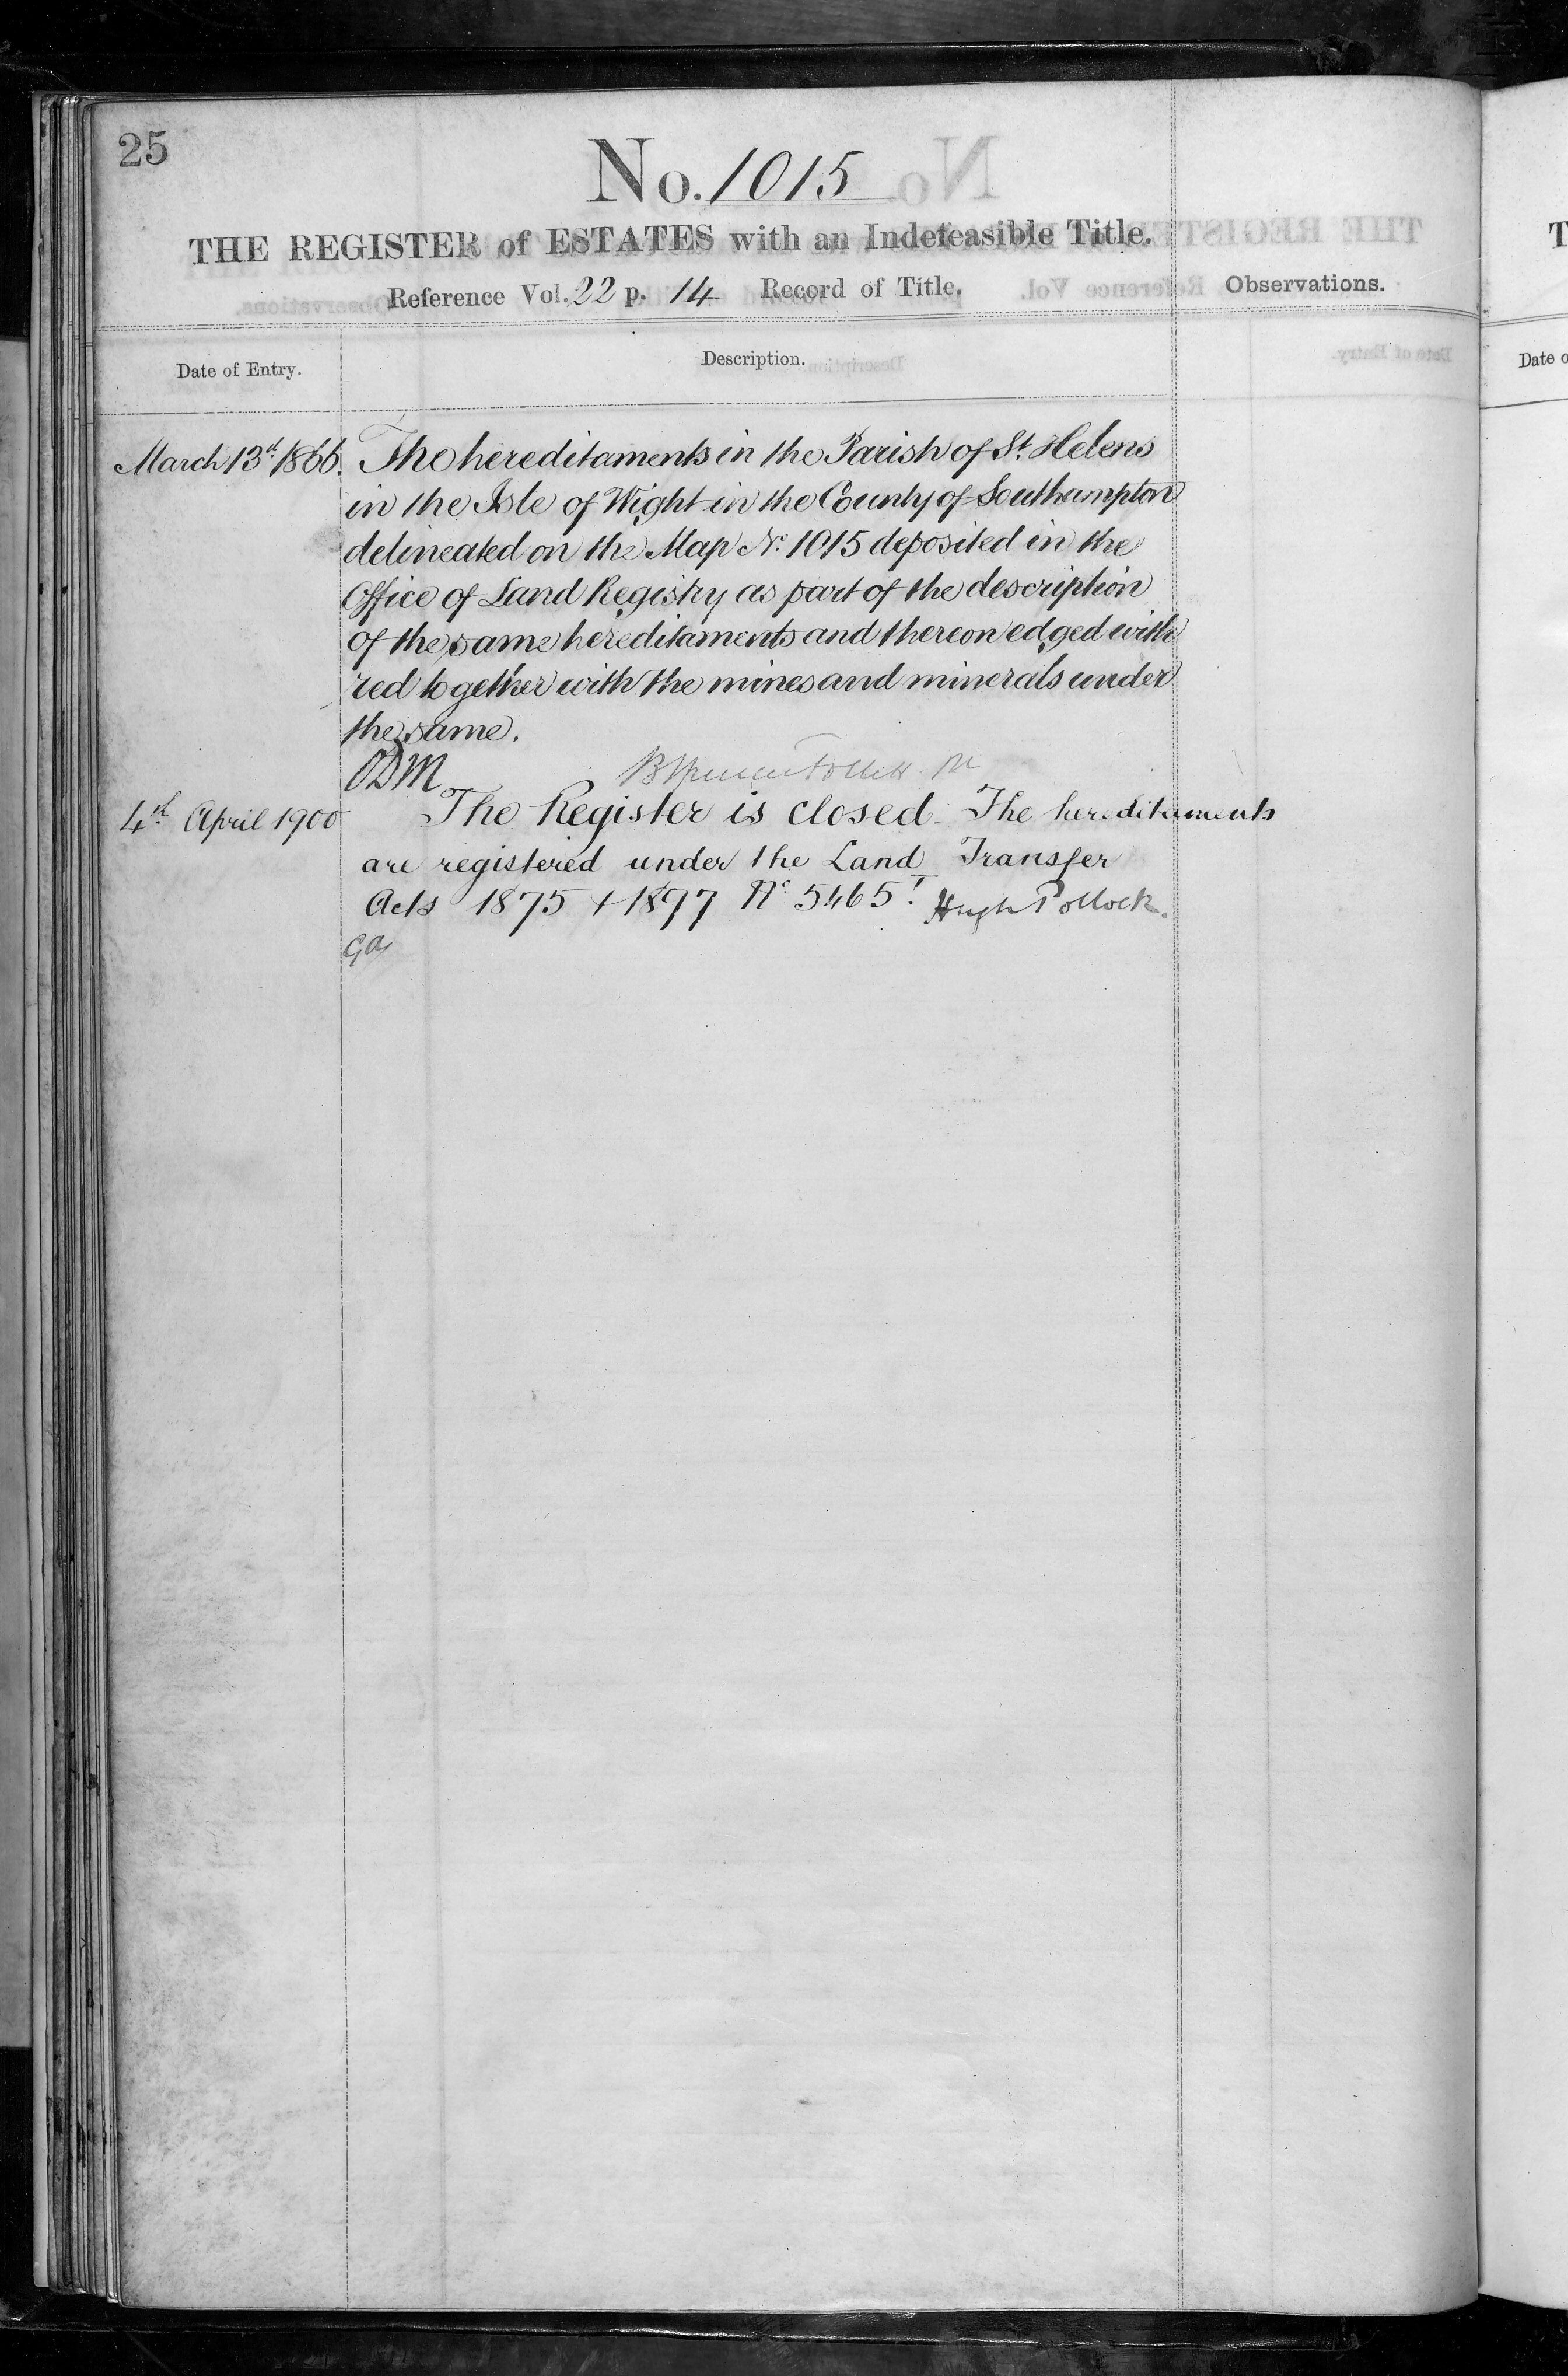 25
No. 1015
THE REGISTER of ESTATES with an Indefeasible Title.
Reference Vol. 22 p. 14 Record of Title.
Observations.
Date of Entry.
Description.
March 13th 1866. The hereditaments in the Parish of St. Helens
in the Isle of Wight in the County of Southampton
delineated on the Map No. 1015 deposited in the
Office of Land Registry as part of the description
of the same hereditaments and thereon edged with
red together with the mines and minerals under
the same.
ODM
4th April 1900 The Register is closed. The hereditaments
are registered under the Land Transfer
Acts 1875 + 1897 No. 5465. Hugh Pollock.